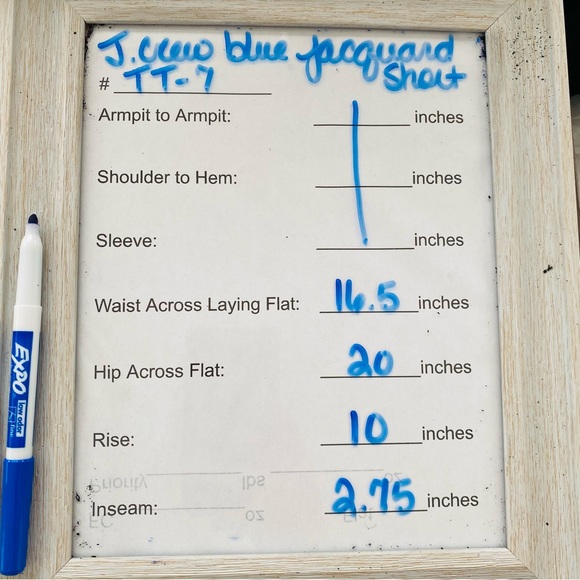 J. crew blue jacquard
Short
# TT-7
Armpit to Armpit: inches
Shoulder to Hem: inches
Sleeve: inches
Waist Across Laying Flat: 16.5 inches
Hip Across Flat: 20 inches
Rise: 10 inches
Priority lbs oz
Inseam: 2.75 inches
oz
EXPO